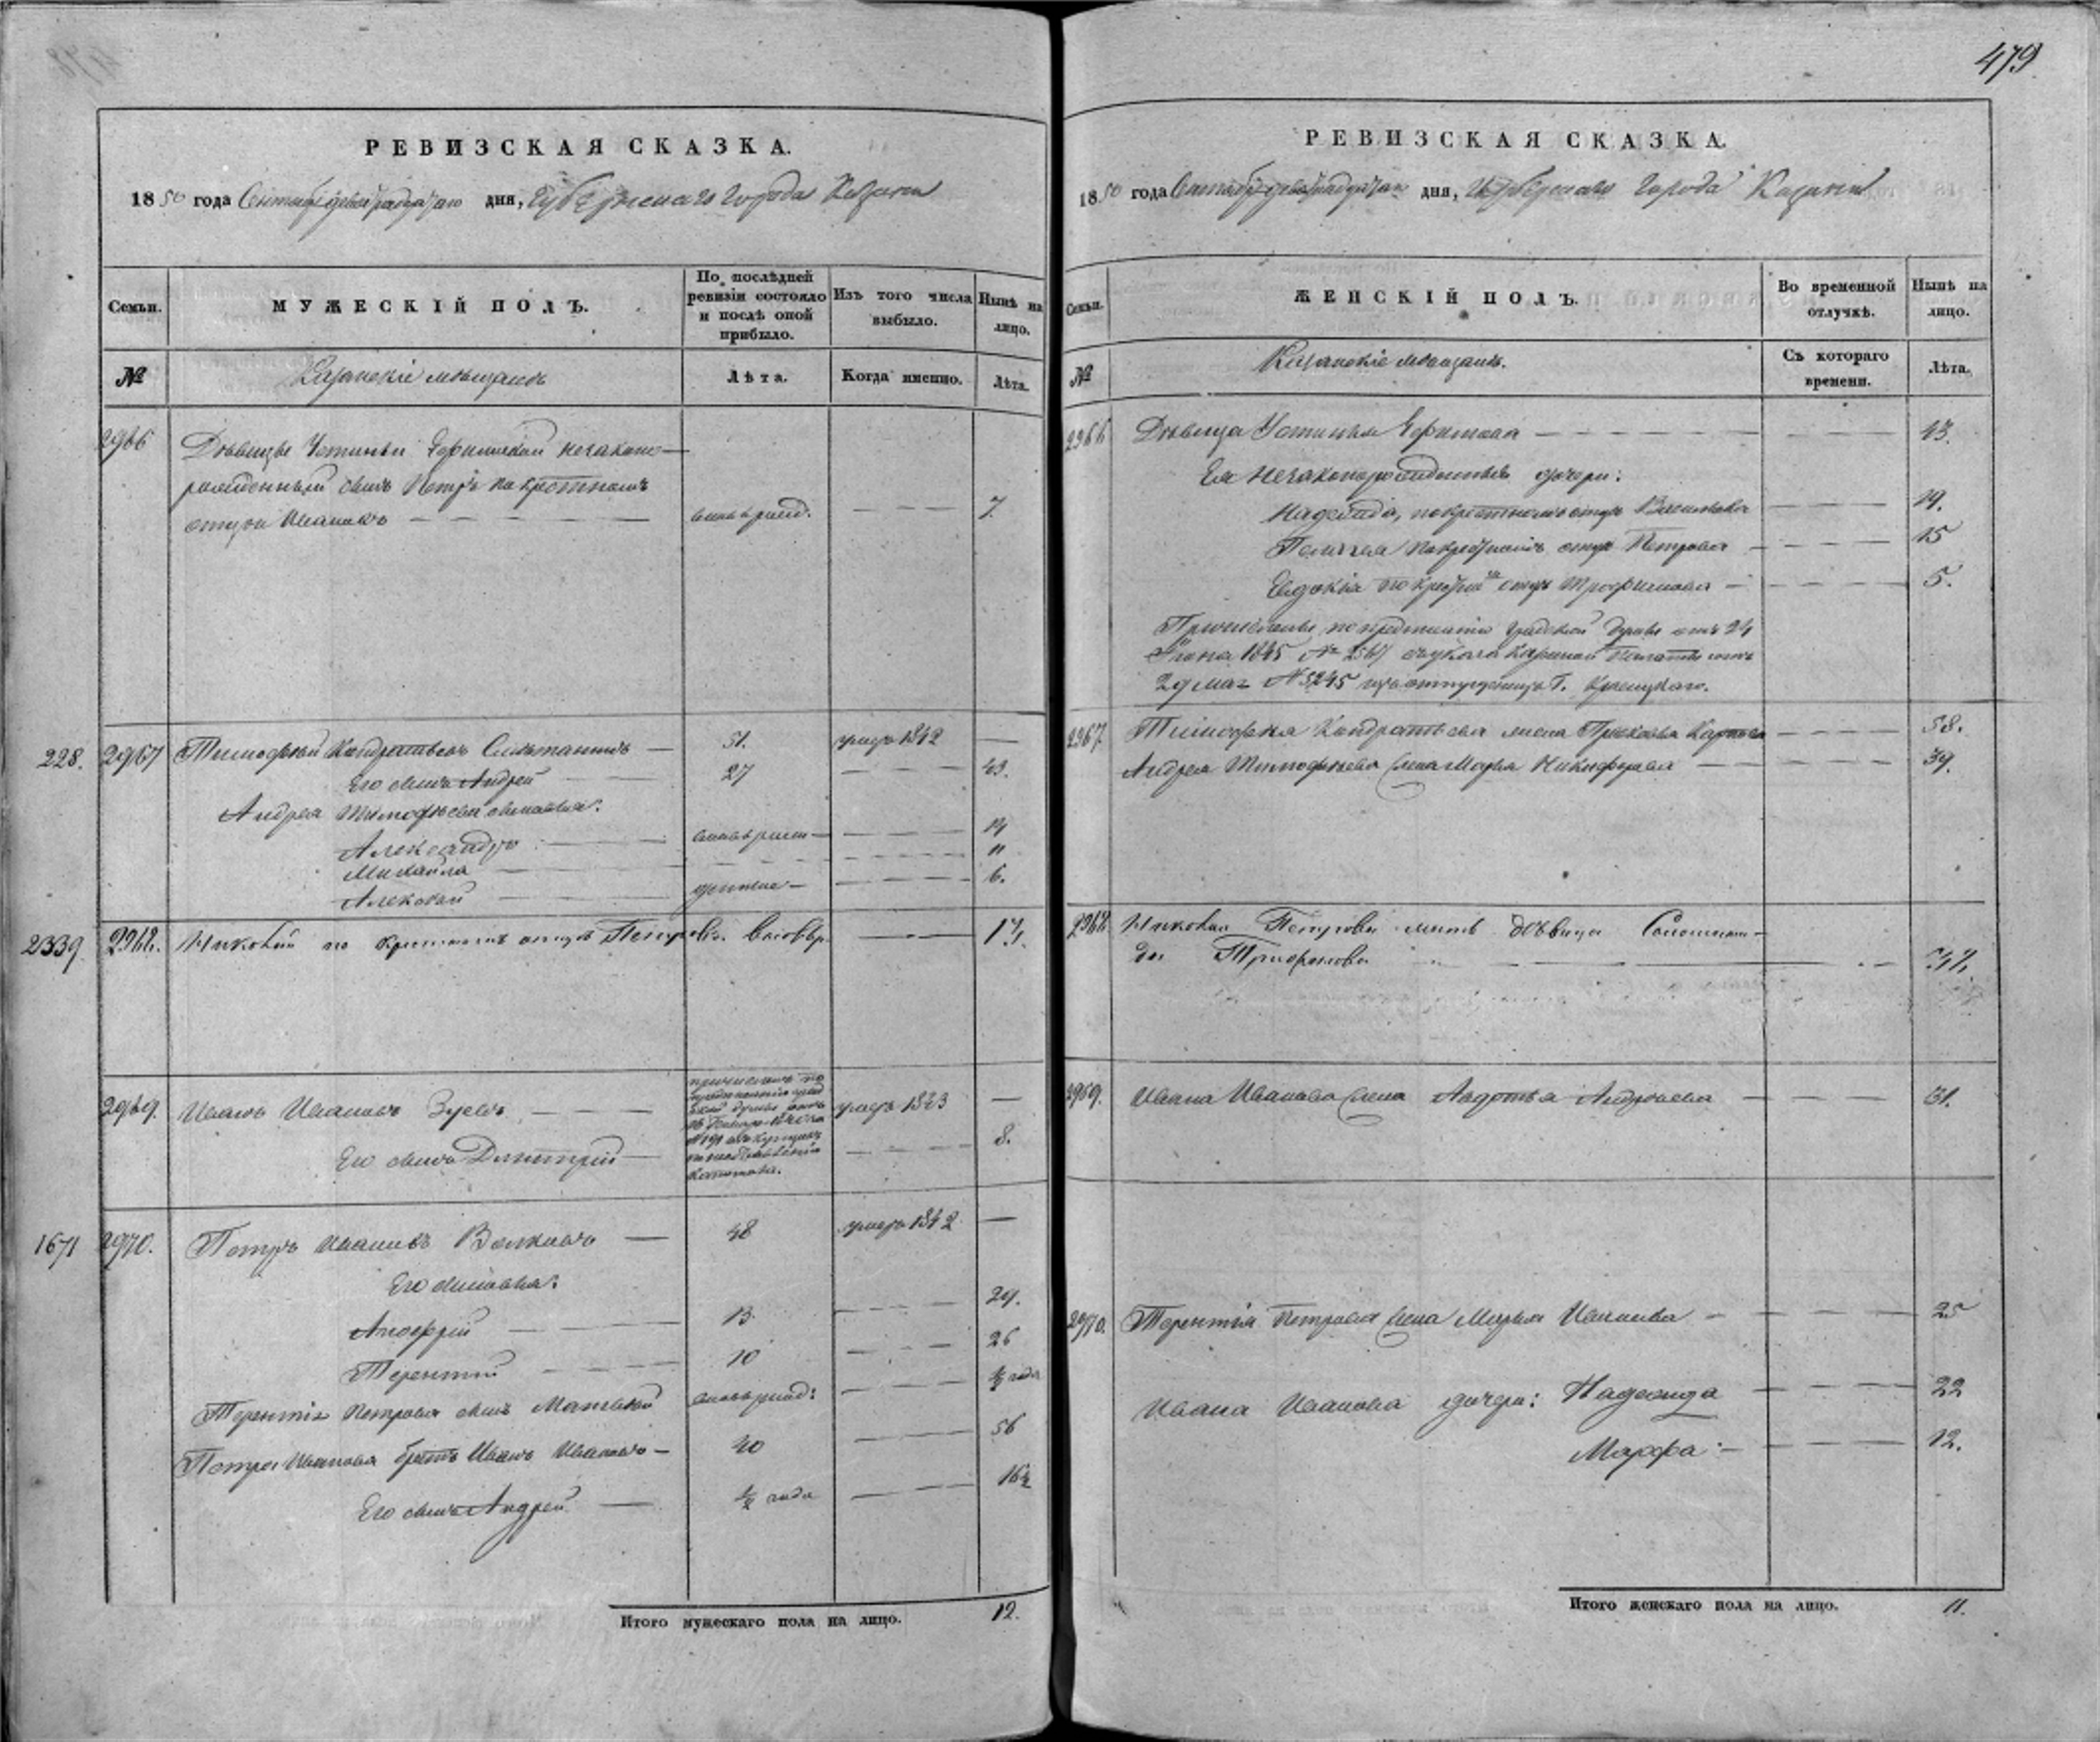 РЕВИЗСКАЯ СКАЗКА.
1850 года Сентября двадцатаго дня, Губернскаго города Казани
Семьи.
МУЖЕСКІЙ ПОЛЪ.
По послѣдней ревизіи состояло и послѣ оной прибыло.
Изъ того числа выбыло.
Нынѣ на лицо.
№
Казанскіе мѣщане
Лѣта.
Когда именно.
Лѣта.
2966 Дѣвицы Устиньи Ефимовой незаконо-
рожденный сынъ Петръ по крестному
отцу Ивановъ вновь рожд. 7.
228. 2967 Тимофей Кондратьевъ 51. умеръ 1842
Его сынъ Андрей 27 43.
Андрея Тимофѣева сыновья:
Александръ вновь рожд 14
Михайла 11
Алексѣй 6.
2339 2968. Николай по крестному отцу Петровъ. 17.
2969. Иванъ Ивановъ Зуевъ умеръ 1843
Его сынъ Дмитрій 8.
1671 2970. Петръ Ивановъ Волковъ 48 умеръ 1842
Его сыновья:
13. 29.
Терентій 10 26
Терентія Петрова сынъ Матвѣй вновь рожд: ½ года
Петра Иванова братъ Иванъ Ивановъ 40 56
Его сынъ Андрей ½ года 16½
Итого мужескаго пола на лицо. 12.
479
РЕВИЗСКАЯ СКАЗКА.
1850 года Сентября двадцатаго дня, Губернскаго города Казани
Семьи.
ЖЕНСКІЙ ПОЛЪ.
Во временной отлучкѣ.
Нынѣ на лицо.
№
Казанскіе мѣщане.
Съ котораго времени.
Лѣта.
2966 Дѣвица Устинья Ефимова 43.
Ея незаконорожденныя дочери:
Надежда, по крестному отцу Васильева 19.
Пелагея по крестному отцу Петрова 15
Евдокія по крестному отцу Трофимова 5.
Причислены по предписанію Градской Думы отъ 24
1845 № 2567 съ указа Казенной Палаты отъ
29 мая № 5245 изъ отпущенницъ Г.
2967. Тимофея Кондратьева жена Прасковья Карпова 58.
Андрея Тимофѣева жена Марья Никифорова 39.
2968. Николая Петрова мать дѣвица
Трифонова
2969. Ивана Иванова жена Авдотья Андреева 31.
2970. Терентія Петрова жена Марья Иванова 25
Ивана Иванова дочери: Надежда 22
Марфа 12.
Итого женскаго пола на лицо. 11.